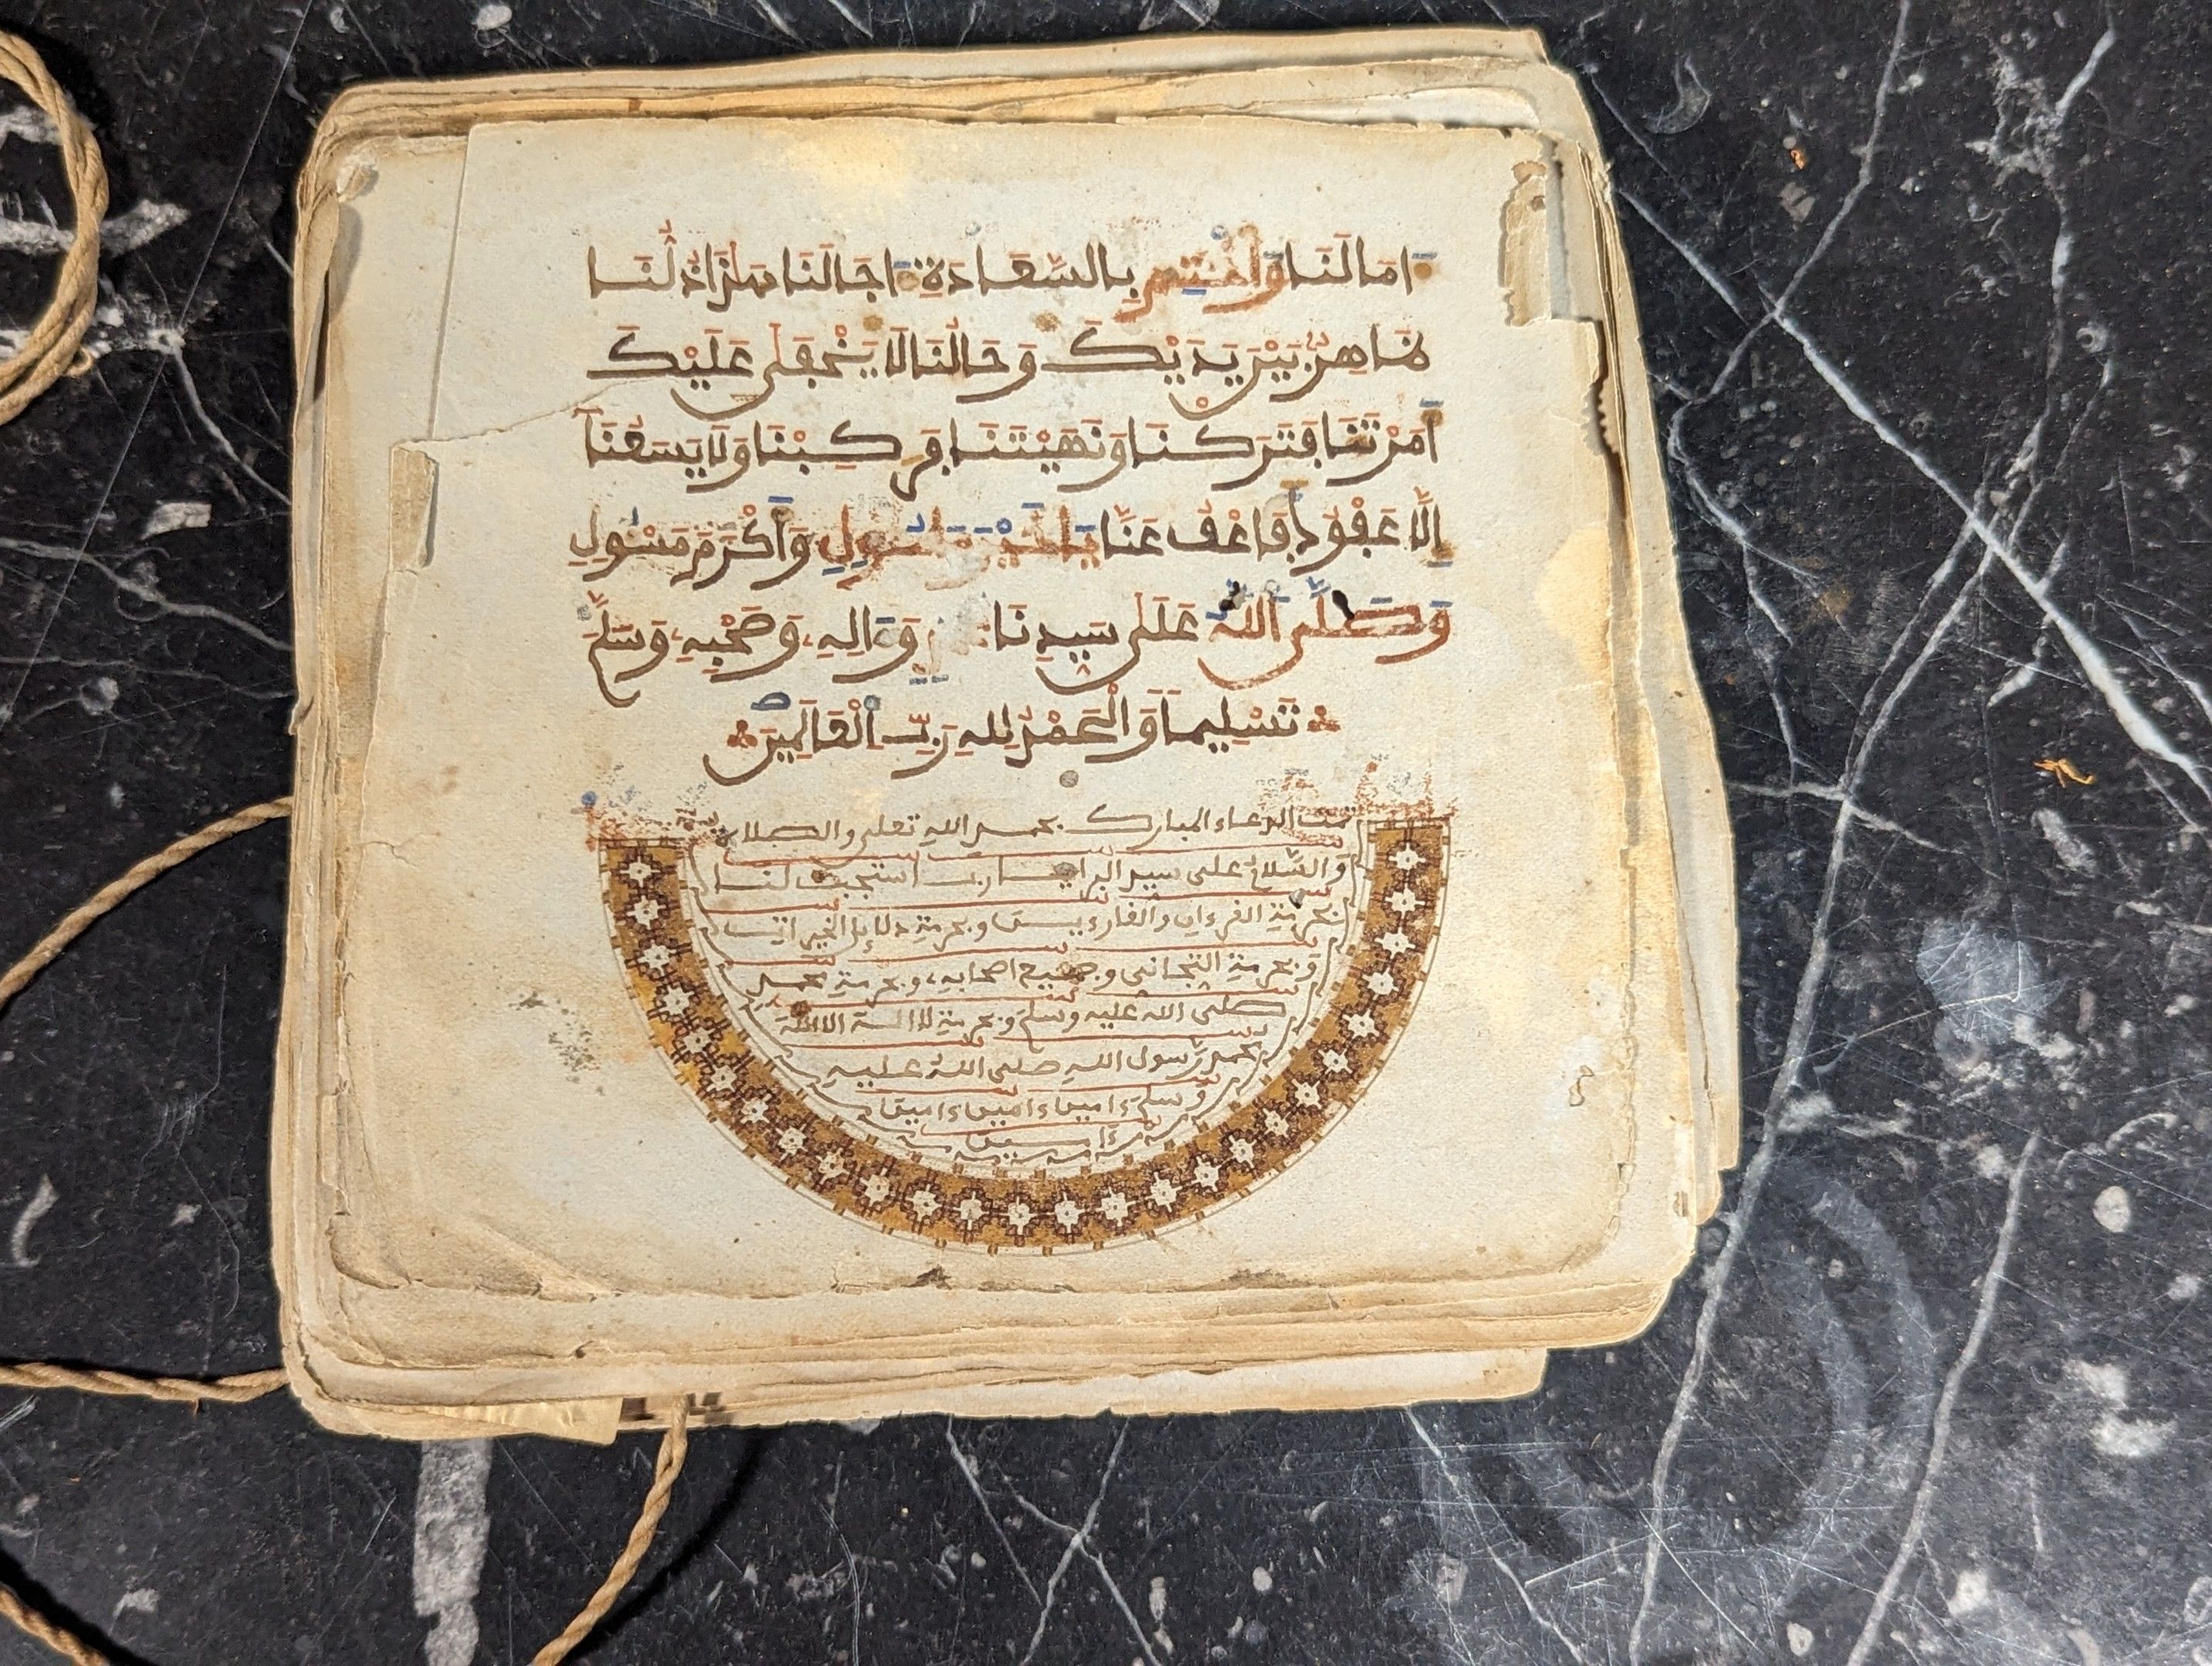 ءامالنا واختم بالسعادة ءاجالنا هذا ذلنا
ظاهر بين يديك وحالنا لا يخفى عليك
أمرتنا فتركنا ونهيتنا فركبنا ولا يسعنا
إلا عفوك فاعف عنا يا خير مامول وأكرم مسئول
وصلى الله على سيدنا وءاله وصحبه وسلم
تسليما والحمد لله رب العالمين
تمت الدعاء المبارك بحمد الله تعلى والصلاة
والسلام على سيد البرايا رب استجب لنا
بحرمة القرءان والقارءين وبحرمة دلايل الخيرات
وبحرمة التجاني وجميع اصحابه وبحرمة محمد
صلى الله عليه وسلم وبحرمة لا اله الا الله
محمد رسول الله صلى الله عليه
وسلم ءامين ءامين ءامين
ءامين